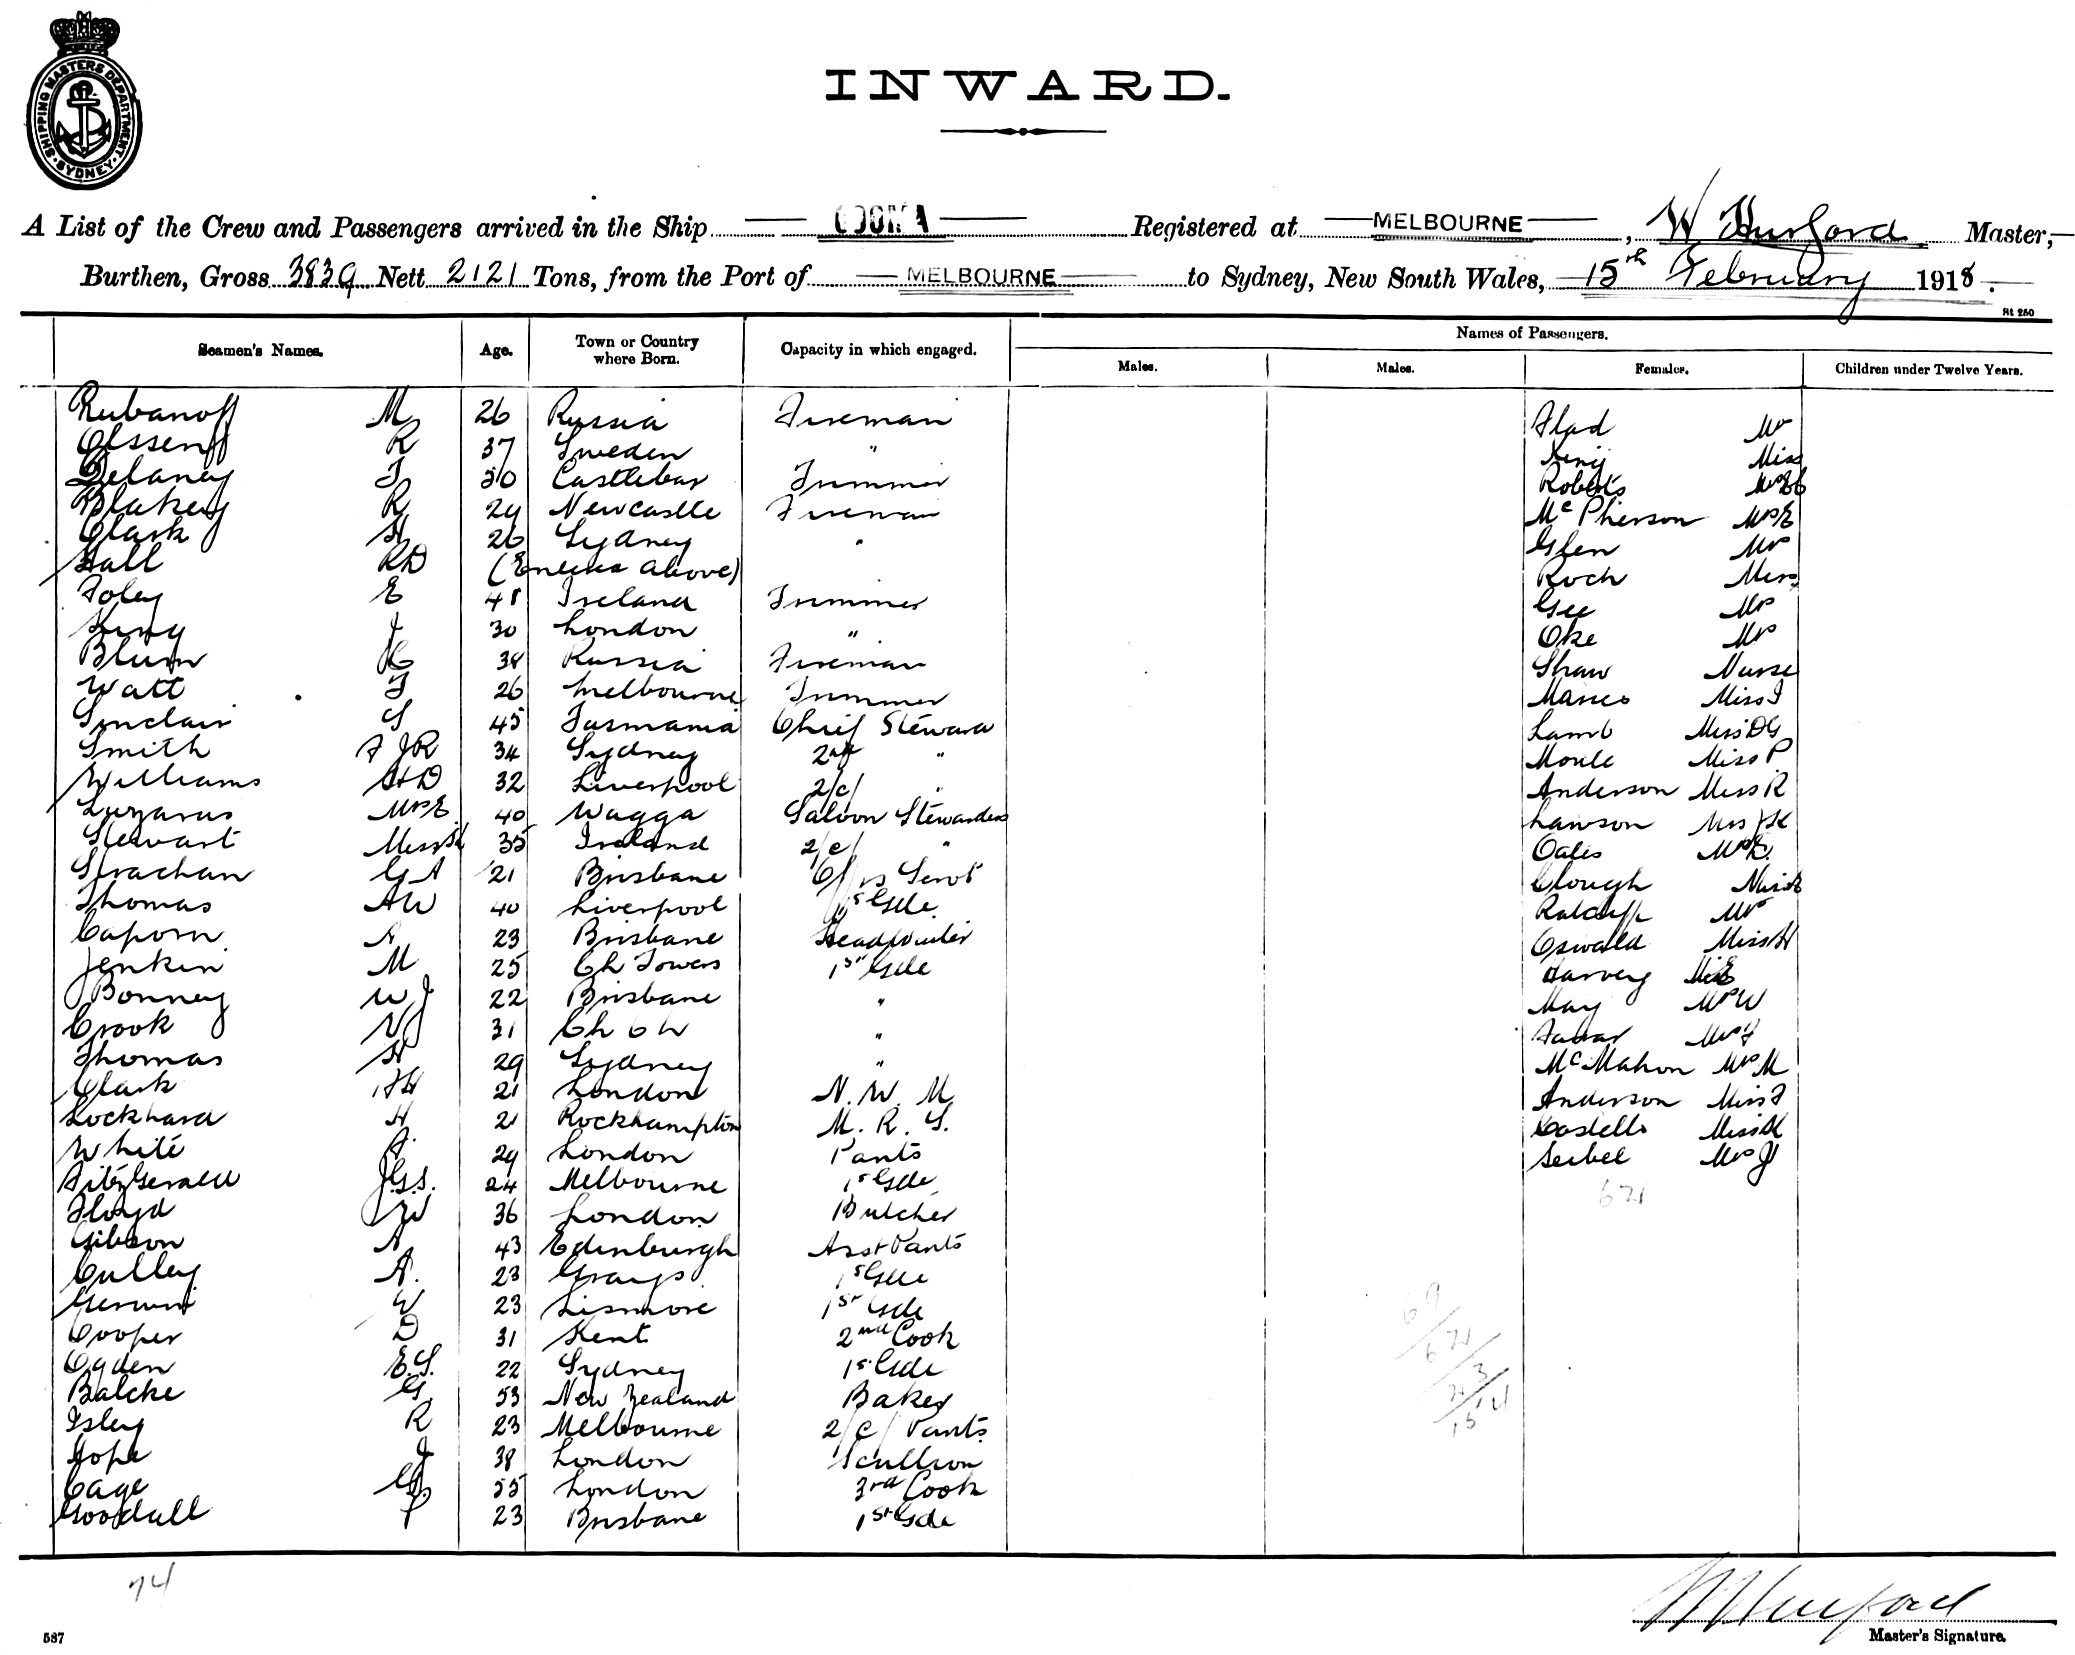 SHIPPING MASTERS DEPARTMENT · SYDNEY ·
INWARD.
A List of the Crew and Passengers arrived in the Ship COOMA Registered at MELBOURNE, W Hurford Master,
Burthen, Gross 3839 Nett 2121 Tons, from the Port of MELBOURNE to Sydney, New South Wales, 15th February 1918.
St 250
Seamen's Names. Age. Town or Country where Born. Capacity in which engaged. Names of Passengers.
Males. Males. Females. Children under Twelve Years.
Rubanoff M 26 Russia Fireman Flad
Olssen R 37 Sweden " King Miss
Delaney T 50 Castlebar Trimmer Roberts
Blakey R 29 Newcastle Fireman McPherson Mrs E
Clark H 26 Sydney " Glen Mrs
Hall RD (Entered above) Roch Miss
Foley E 48 Ireland Trimmer Gee Mrs
King J 30 London " Oke Mrs
Blum 38 Russia Fireman Shaw Nurse
Watt T 26 Melbourne Trimmer Miss I
Sinclair G 45 Tasmania Chief Steward Lamb Miss DG
Smith F J R 34 Sydney 2nd " Miss P
Williams H D 32 Liverpool 2/c/ " Anderson Miss R
Lazarus Mrs E 40 Wagga Saloon Stewardess Lawson Mrs
Stewart Miss 35 Ireland 2/c/ " Oates Mrs
Strachan G A 21 Brisbane Clough
Thomas A W 40 Liverpool 1st Gde Ratcliffe Mrs
Caporn A 23 Brisbane Headwaiter Oswald Miss H
Jenkin M 25 Ch Towers 1st Gde Harvey
Bonney W J 22 Brisbane " May Mrs W
Crook 31 Ch Ch " Mrs
Thomas H 29 Sydney " McMahon Mrs M
Clark 21 London N. W. M. Anderson Miss F
Lockhard H 21 Rockhampton M. R. S. Costello Miss
White A. 29 London Pants Seibel Mrs J
FitzGerald J.G.S. 24 Melbourne 1st Gde 621
Floyd W 36 London Butcher
Gibson A 43 Edinburgh Asst Pants
Culley A. 23 Grays 1st Gde
W 23 Lismore 1st Gde
Cooper D 31 Kent 2nd Cook
Ogden E.S. 22 Sydney 1st Gde
Balcke G 53 New Zealand Baker
Isley R 23 Melbourne 2/c/ Pants
Hope J 38 London Scullion
Cage 55 London 3rd Cook
Goodall P 23 Brisbane 1st Gde
74
W Hurford
587
Master's Signature.